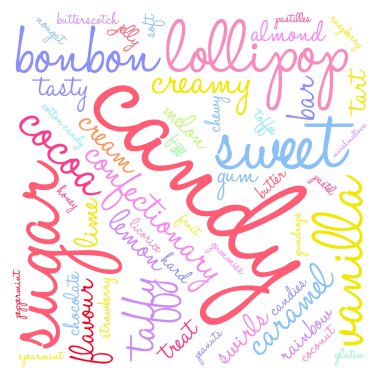 butterscotch
pastilles
nougat
jelly
soft
raspberry
bonbon
lollipop
almond
tasty
creamy
bar
tart
candy
cotton candy
chewy
toffee
marshmallows
melon
sweet
cocoa
cream
gum
butter
pastel
confectionary
honey
lime
sugar
lemon
licorice
fruit
gumdrops
vanilla
hard
gummies
peppermint
chocolate
flavour
strawberry
taffy
treat
swirls
candies
caramel
rainbow
peanuts
coconut
spearmint
gelatin